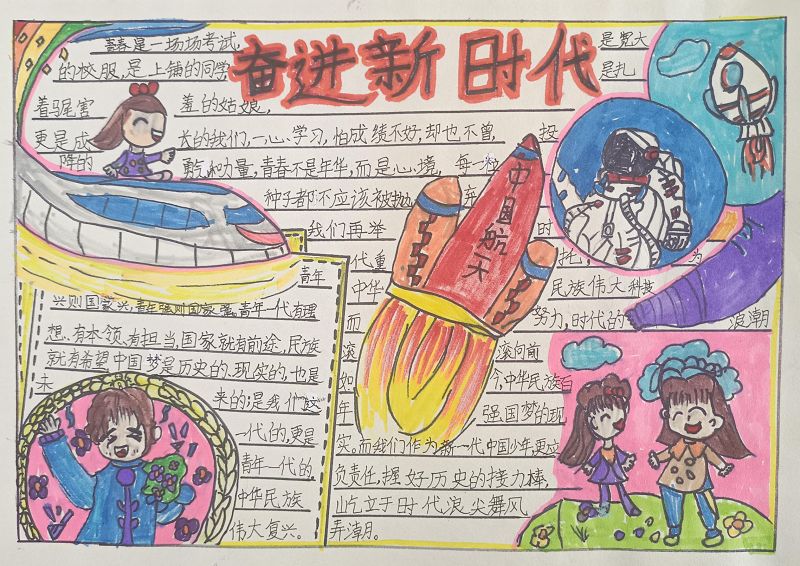 奋进新时代
青春是一场场考试, 是宽大
的校服,是上铺的同学 是扎
着马尾害 羞的姑娘,
更是成 长的我们,一心学习,怕成绩不好,却也不曾, 投
降的 勇气和力量,青春不是年华,而是心境,每一粒
种子都不应该被抛 弃
我们再举 时
代重 托, 为
中华 民族伟大科技
而 努力,时代的 浪潮
滚 滚向前
如 今,中华民族自
年 强国梦的现
实。而我们作为新一代中国少年,更应
负责任,握好历史的接力棒,
屹立于时代浪尖舞风
弄潮。
中国航天
青年
兴则国家兴,青年强则国家强。青年一代有理
想、有本领、有担当,国家就有前途,民族
就有希望中国梦是历史的、现实的,也是
未 来的;是我们这
一代的,更是
青年一代的。
中华民族
伟大复兴。